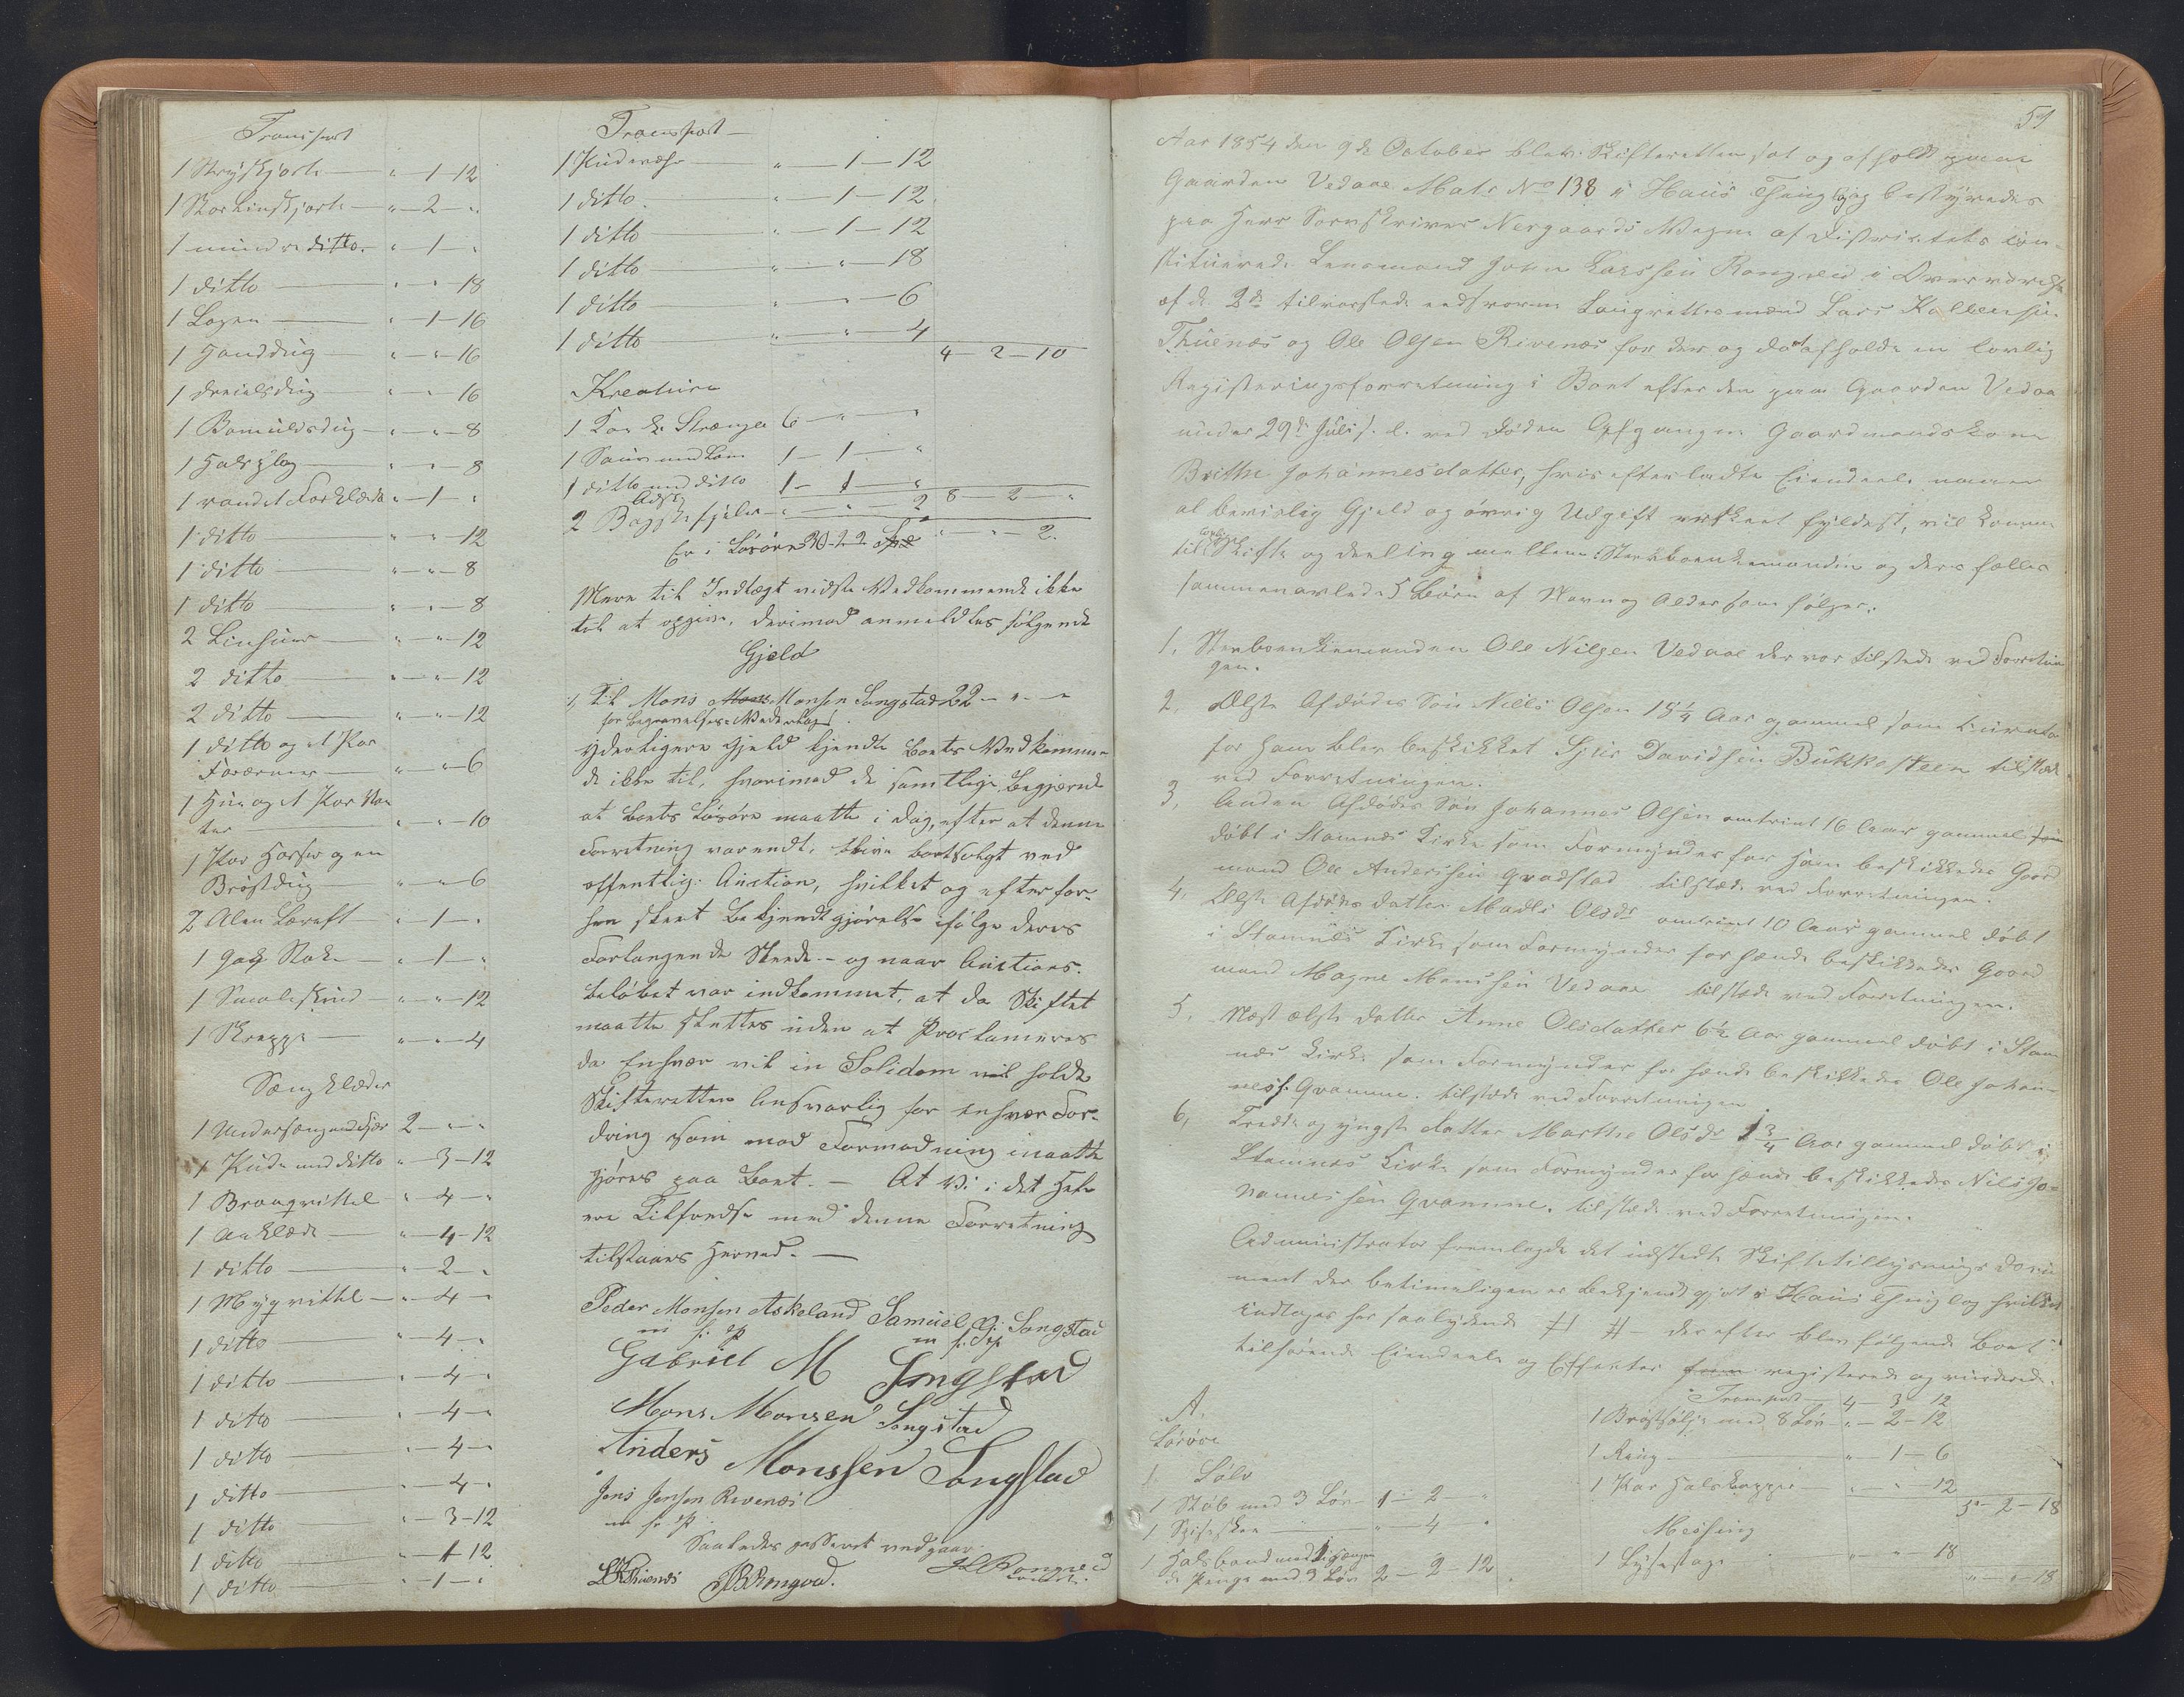 Transport
1 Strÿskjorte " - 1 - 12
1 Stor Linskjorte " - 2 - "
1 mindre ditto. " - 1 - "
1 ditto " - " - 18
1 Lagen " - 1 - 16
1 Handdug " - " - 16
1 Dreielsdug " - " - 16
1 Bomuldsdug " - " - 8
1 Halsplag " - " - 8
1 randet Forklæde " - 1 - "
1 ditto " - " - 12
1 ditto " - " - 8
1 ditto " - " - 8
2 Linhuer " - " - 12
2 ditto " - " - 12
2 ditto " - " - 12
1 ditto og et Par
" - " - 6
1 Hue og et Par Van
ter " - " - 10
1 Par Hoser og en
Brøstdug " - " - 6
2 Alen Lærret " - 1 - "
1 " - 1 - "
1 Smaleskind " - " - 12
1 Skreppe " - " - 4
Sængklæder
1 Undersængmedfjær 2 - " - "
1 Pude med ditto " - 3 - 12
1 Brangvittel " - 4 - "
1 Aaklæde " - 4 - 12
1 ditto " - 2 - "
1 Mÿgvittel " - 4 - "
1 ditto " - 4 - "
1 ditto " - 4 - "
1 ditto " - 4 - "
1 ditto " - 4 - "
1 ditto " - 4 - "
1 ditto " - 3 - 12
1 ditto " - 1 - 12
1 ditto " - 1 - "
Transport
1 Pudevær " - 1 - 12
1 ditto. " - 1 - 12
1 ditto " - 1 - 12
1 ditto " - " - 18
1 ditto " - " - 6
1 ditto " - " - 4
4 - 2 - 10
Kreature
1 Ko k: Strange 6 - " - "
1 Sau med Lam 1 - 1 - "
1 ditto med ditto 1 - 1 - "
8 - 2 - "
2 " - " - 2
" - " - 2.
Er i Løsøre 30 - 2 - 2
Mere til Indtægt vidste Vedkommende ikke
til at opgive, derimod anmeldtes følgende
Gjeld
1, Til Mons Monsen Songstad 22 - " - "
for Begravelses Vederlag
yderligere Gjeld kjendte Boets Vedkommen
de ikke til, hvorimod de samtlige begjærede
at Boets Løsøre maatte i dag, efter at denne
Forretning var endt, blive bortsolgt ved
offentlig Auction, hvilket og efter for-
hen skeet Bekjendtgjørelse ifølge deres
Forlangende Skede - og naar Auctions-
beløbet var indkommet, at da Skiftet
maatte sluttes uden at Proclameres
da Enhver vil in Solidom vil holde
Skifteretten Ansvarlig for enhver For-
dring som mod Formodning maatte
gjøres paa Boet. - At Vi i det Hele
ere Tilfredse med denne Forretning
tilstaaes Herved. -
Peder Monsen Askeland Samuel G: Songstad
m f: P m f: P
Gabriel M Songstad
Mons Monsen Songstad
Anders Monssen Songstad
Jens Jensen Rivenæs
m f: P
Saaledes passeret vedgaar
59
Aar 1854 den 9de October blev Skifteretten sat og afholdt paa
Gaarden Vedaae Matr No 138 i Haus Thinglag bestÿredes
paa Herr Sorenskriver Nergaards Vegne af Districtets con-
stituerede Lensmand John Larssen Rongved i Overværelse
af de 2de tilvorslede eedsvorne Laugrettesmænd Lars Kollensen
Thuenæs og Ole Olsen Rivenæs for der og da at afholde en lovlig
Registeringsforretning i Boet efter den paa Gaarden Vedaa
under 29de Juli s. A. ved Døden Afgangne Gaardmandskone
Brithe Johannesdatter, hvis efterladte Eiendeele naar
al bevislig Gjeld og øvrig Udgift er skeet fyldest, vil komme
til lovligt Skifte og deeling mellem Sterboenkemanden og ders fælles
sammenavlede 5 Børn af Navn og Alder som følger:
1, Sterboenkemanden Ole Nilsen Vedaae der var tilstede ved Forretnin
gen.
2, Ælste Afdødes Søn Nills Olsen 18 1/4 Aar gammel som Curator
for ham blev beskikket Sjur Davidsen Bukkesteen tilstede
ved Forretningen.
3, Anden Afdødes Søn Johannes Olsen omtrent 16 Aar gammel
døbt i Stamnæs Kirke som Formynder for ham beskikkedes Gaard
mand Ole Anderssen Qvadstad tilstede ved Forretningen.
4, Ælste Afdødes datter Madli Olsdr omtrent 10 Aar gammel døbt
i Stamnæs Kirke som Formynder for hende beskikkedes Gaard
mand Magne Monssen Vedaae tilstede ved Forretningen.
5, Næst ælste datter Anne Olsdatter 6 1/2 Aar gammel døbt i Stam
næs Kirke som Formynder for hende beskikkedes Ole Johan-
ness. Qvamme. tilstede ved Forretningen
6, Tredde og yngste datter Marthe Olsdr 1 3/4 Aar gammel døbt i
Stamnæs Kirke som Formynder for hende beskikkedes Nils Jo-
hannessen Qvamme. tilstede ved Forretningen.
Administrator fremlagde det udstedte Skiftetillysnings docu
ment der betimeligen er bekjendtgjort i Haus Thinglag hvilket
indtages her saalydende # # - der efter blev følgende Boet
tilhørende Eiendeele og Effecter registerede og vurderede.
A.
Løsøre
1. Sølv
1 Støb med 3 Lør 1 - 2 - "
1 Spiseskee " - 4 - "
1 Halsbaand med 1 hængen
de Penge med 3 Lør 2 - 2 - 12
Transport 4 - 3 - 12
1 Brøstsølje med 8 Lør " - 2 - 12
1 Ring " - 1 - 6
1 Par Halsknapper " - " - 12
5 - 2 - 18
Messing
1 Lysestage " - " - 18
" - " - 18